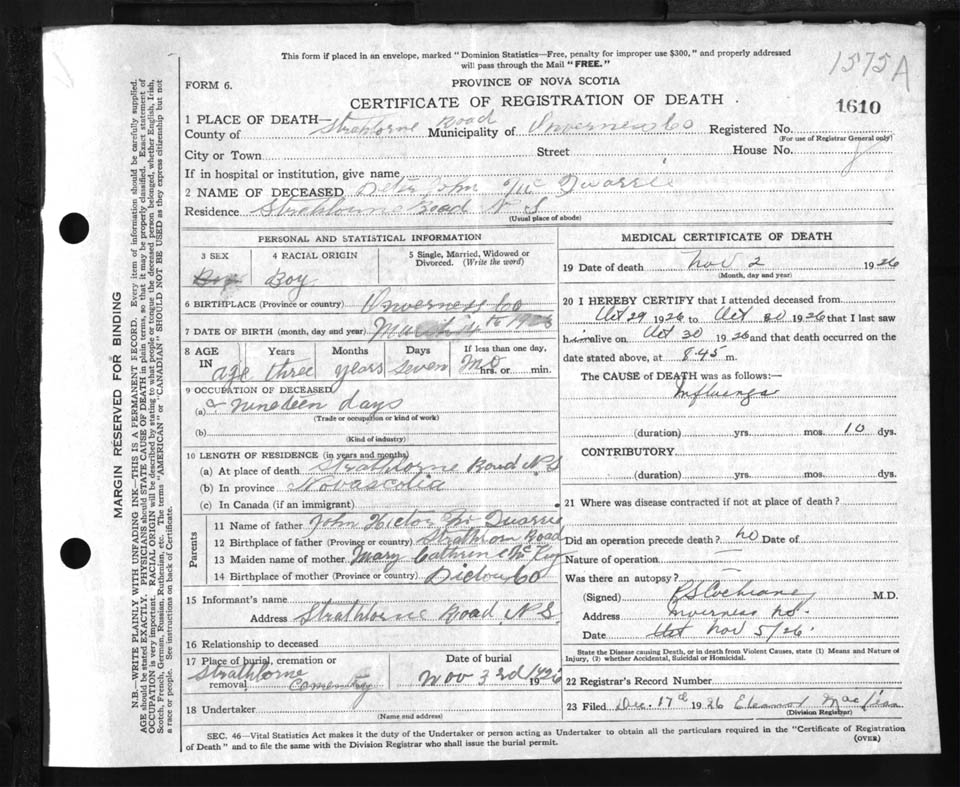 This form if placed in an envelope, marked "Dominion Statistics—Free, penalty for improper use $300," and properly addressed
will pass through the Mail "FREE."
1575A
FORM 6.
PROVINCE OF NOVA SCOTIA
CERTIFICATE OF REGISTRATION OF DEATH
1610
1 PLACE OF DEATH—
County of Strathlorne Road Municipality of Inverness Co Registered No.
(For use of Registrar General only)
City or Town Street House No.
If in hospital or institution, give name
2 NAME OF DECEASED Peter John Mc Quarrie
Residence Strathlorne Road N S
(Usual place of abode)
PERSONAL AND STATISTICAL INFORMATION
3 SEX 4 RACIAL ORIGIN 5 Single, Married, Widowed or Divorced. (Write the word)
Boy Boy
6 BIRTHPLACE (Province or country) Inverness Co
7 DATE OF BIRTH (month, day and year)
8 AGE IN Years Months Days If less than one day, hrs. or min.
age three years seven Mo
9 OCCUPATION OF DECEASED
(a) & nineteen days
(Trade or occupation or kind of work)
(b)
(Kind of industry)
10 LENGTH OF RESIDENCE (in years and months)
(a) At place of death Strathlorne Road N.S
(b) In province Novascotia
(c) In Canada (if an immigrant)
Parents
11 Name of father John Hector Mc Quarrie
12 Birthplace of father (Province or country) Strathlorn Road
13 Maiden name of mother Mary Cathrine Mc
14 Birthplace of mother (Province or country) Pictou Co
15 Informant's name
Address Strathlorne Road N.S.
16 Relationship to deceased
17 Place of burial, cremation or removal Date of burial
Strathlorne Nov 3rd 1926
18 Undertaker
(Name and address)
MEDICAL CERTIFICATE OF DEATH
19 Date of death Nov 2 1926
(Month, day and year)
20 I HEREBY CERTIFY that I attended deceased from
Oct 29 1926 to Oct 30 1926 that I last saw
him alive on Oct 30 1926 and that death occurred on the
date stated above, at 8.45 m.
The CAUSE of DEATH was as follows:—
Influenza
(duration) yrs. mos. 10 dys.
CONTRIBUTORY
(duration) yrs. mos. dys.
21 Where was disease contracted if not at place of death?
Did an operation precede death? no Date of
Nature of operation
Was there an autopsy?
(Signed) Cochrane M.D.
Address Inverness N.S.
Date Oct Nov 5/26.
State the Disease causing Death, or in death from Violent Causes, state (1) Means and Nature of
Injury, (2) whether Accidental, Suicidal or Homicidal.
22 Registrar's Record Number
23 Filed Dec. 17th 1926 Eleanor
(Division Registrar)
SEC. 46—Vital Statistics Act makes it the duty of the Undertaker or person acting as Undertaker to obtain all the particulars required in the "Certificate of Registration
of Death" and to file the same with the Division Registrar who shall issue the burial permit.
(OVER)
MARGIN RESERVED FOR BINDING
N.B.—WRITE PLAINLY WITH UNFADING INK—THIS IS A PERMANENT RECORD. Every item of information should be carefully supplied.
AGE should be stated EXACTLY. PHYSICIANS should STATE CAUSE OF DEATH in plain terms, so that it may be properly classified. Exact statement of
OCCUPATION is very important. RACIAL ORIGIN will be described by stating to what people or tongue the deceased person belonged, whether English, Irish,
Scotch, French, German, Russian, Ruthenian, etc. The terms "AMERICAN" or "CANADIAN" SHOULD NOT BE USED as they express citizenship but not
a race or people. See instructions on back of Certificate.